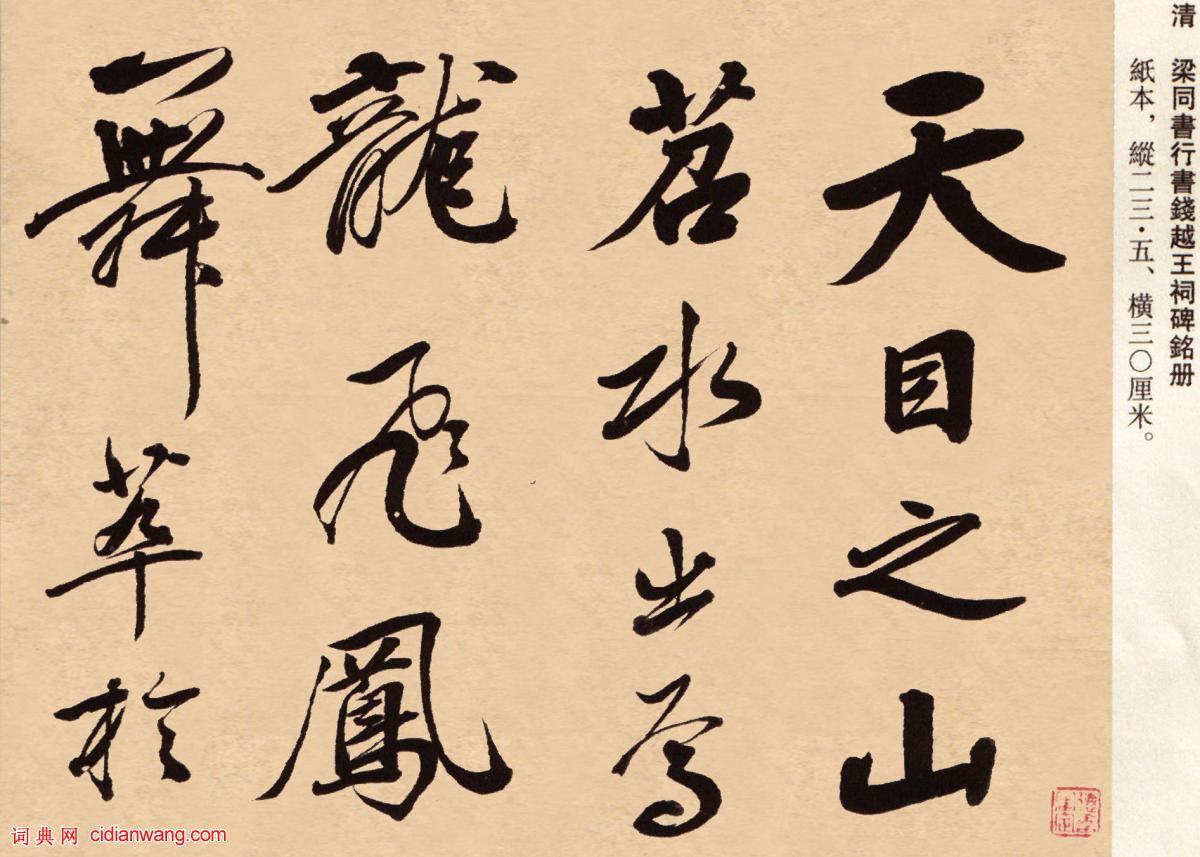 清 梁同書行書錢越王祠碑銘册
紙本，縱二三·五、橫三〇厘米。
天目之山
苕水出焉
龍飛鳳
舞萃於
词典网 cidianwang.com